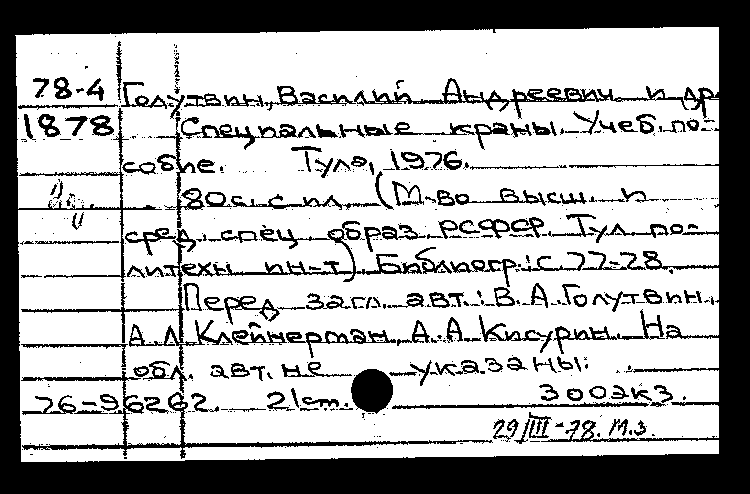 78-4 Голутвин, Василий Андреевич и др
1878 Специальные краны. Учеб. по-
собие. Тула, 1976.
80с. с ил. (М-во высш. и
сред. спец образ РСФСР. Тул по-
литехн ин-т) Библиогр.: с 77-78.
Перед загл. авт.: В.А.Голутвин,
А.Л Клейнерман, А.А Кисурин. На
обл. авт. не указаны.
76-96262. 21cm. 300экз.
29/III-78. М.З.